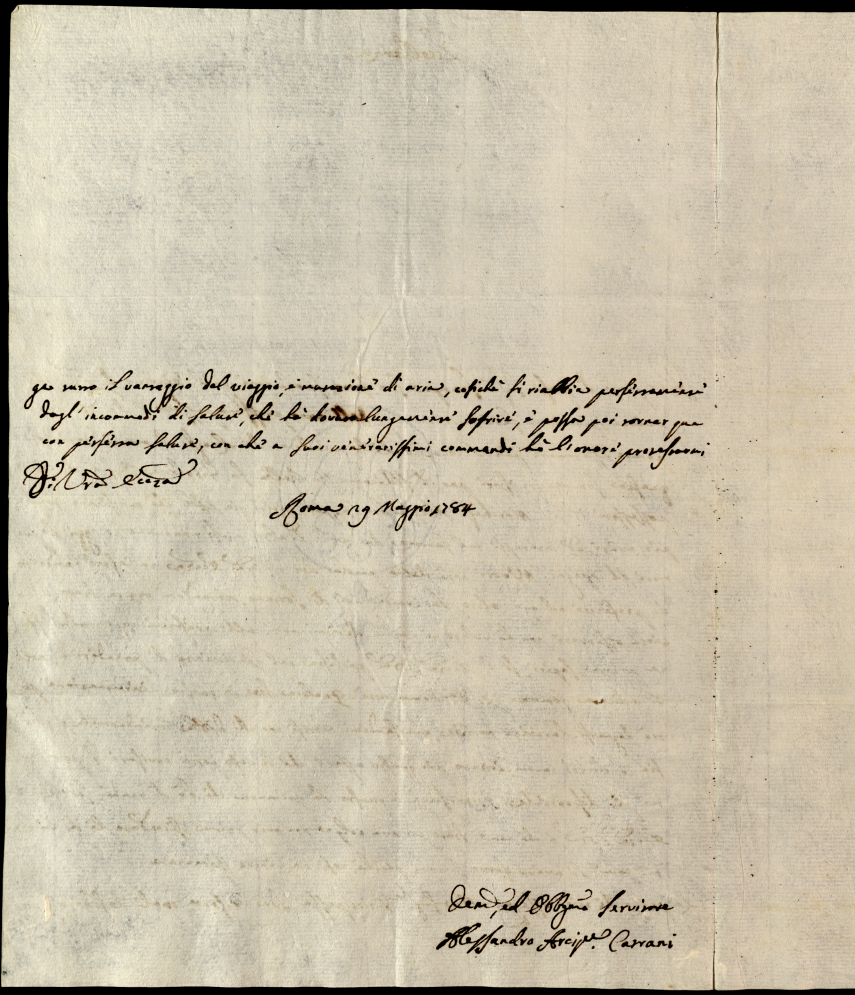 ga tutto il vantaggio dal viaggio, e mutazione di aria, cosiche si riabbia perfettamente
dagl' incommodi di salute, che hà dovuto lungamente soffrire, e possa poi tornar qua
con perfetta salute, con che a suoi veneratissimi commandi hò l'onore protestarmi
Di Vrã Eccza
Roma 29 Maggio 1784
Devmo, ed Obbgmo Servitore
Alessandro Arcipte. Carrani